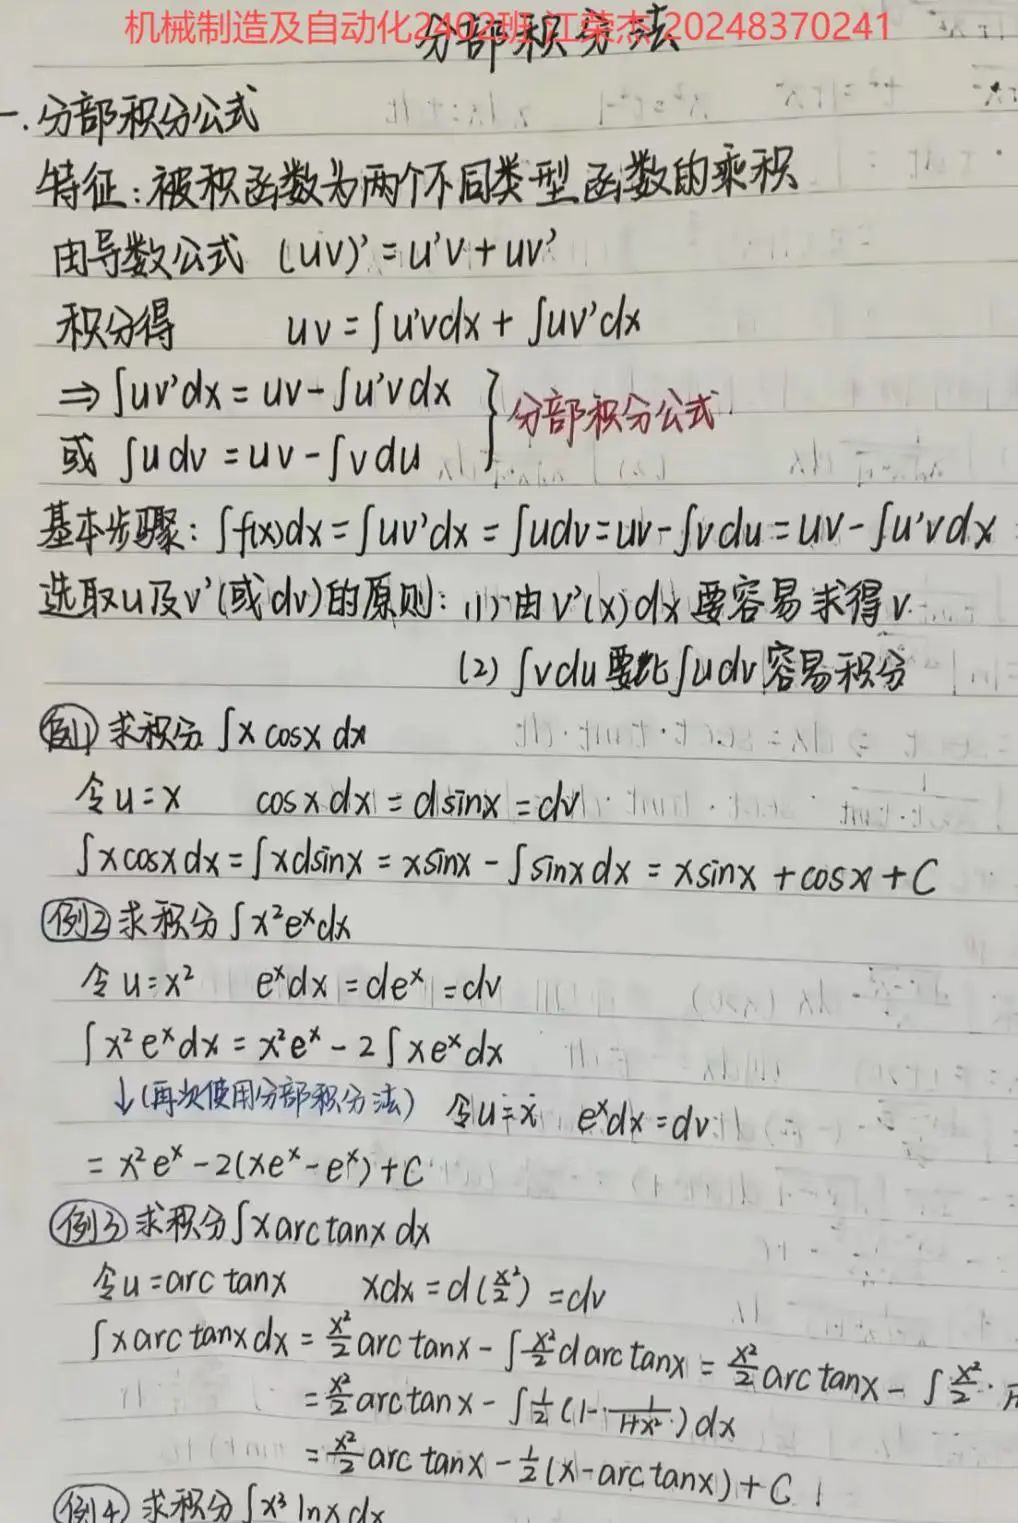 机械制造及自动化2402班 江荣杰 20248370241
分部积分法
一.分部积分公式
特征:被积函数为两个不同类型函数的乘积
由导数公式 (uv)'=u'v+uv'
积分得 uv=∫u'vdx+∫uv'dx
⇒∫uv'dx=uv-∫u'vdx
或 ∫udv=uv-∫vdu } 分部积分公式
基本步骤:∫f(x)dx=∫uv'dx=∫udv=uv-∫vdu=uv-∫u'vdx
选取u及v'(或dv)的原则: (1)由v'(x)dx要容易求得v
(2)∫vdu要比∫udv容易积分
例1 求积分 ∫x cosx dx
令u=x cosxdx=dsinx=dv
∫xcosxdx=∫xdsinx=xsinx-∫sinxdx=xsinx+cosx+C
例2 求积分∫x²eˣdx
令u=x² eˣdx=deˣ=dv
∫x²eˣdx=x²eˣ-2∫xeˣdx
↓(再次使用分部积分法) 令u=x eˣdx=dv
=x²eˣ-2(xeˣ-eˣ)+C
例3 求积分∫xarctanxdx
令u=arctanx xdx=d(x²/2)=dv
∫xarctanxdx=x²/2 arctanx-∫x²/2 darctanx=x²/2 arctanx-∫x²/2·
=x²/2 arctanx-∫1/2(1-1/(1+x²))dx
=x²/2 arctanx-1/2(x-arctanx)+C
例4 求积分∫x³lnxdx